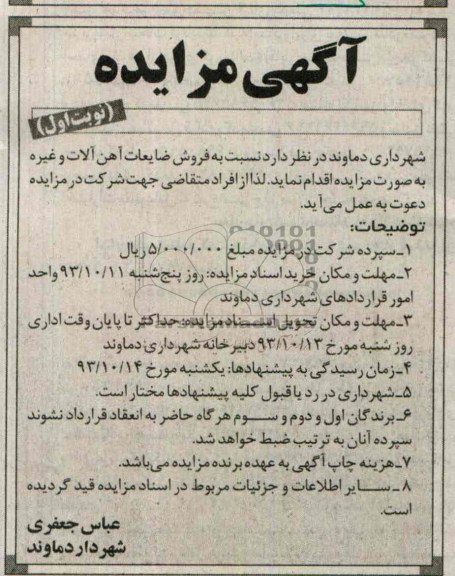 آگهی مزایده
(نوبت اول)
شهرداری دماوند در نظر دارد نسبت به فروش ضایعات آهن آلات و غیره
به صورت مزایده اقدام نماید. لذا از افراد متقاضی جهت شرکت در مزایده
دعوت به عمل می‌آید.
توضیحات:
۱ـ سپرده شرکت در مزایده مبلغ ۵/۰۰۰/۰۰۰ ریال
۲ـ مهلت و مکان خرید اسناد مزایده: روز پنج‌شنبه ۹۳/۱۰/۱۱ واحد
امور قراردادهای شهرداری دماوند
۳ـ مهلت و مکان تحویل اسناد مزایده: حداکثر تا پایان وقت اداری
روز شنبه مورخ ۹۳/۱۰/۱۳ دبیرخانه شهرداری دماوند
۴ـ زمان رسیدگی به پیشنهادها: یکشنبه مورخ ۹۳/۱۰/۱۴
۵ـ شهرداری در رد یا قبول کلیه پیشنهادها مختار است.
۶ـ برندگان اول و دوم و سوم هرگاه حاضر به انعقاد قرارداد نشوند
سپرده آنان به ترتیب ضبط خواهد شد.
۷ـ هزینه چاپ آگهی به عهده برنده مزایده می‌باشد.
۸ـ سایر اطلاعات و جزئیات مربوط در اسناد مزایده قید گردیده
است.
عباس جعفری
شهردار دماوند